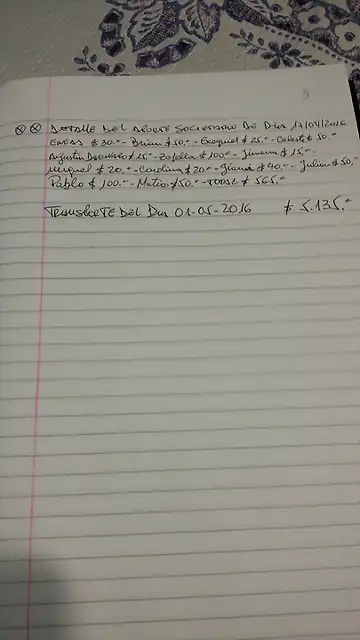 ⊗ ⊗ DETALLE DEL APORTE SOCIETARIO DE DIA 17/04/2016
$ 30.- - Brian $ 50,- - Ezequiel $ 25.- - Celeste $ 50.-
Agustin $ 25.- - $ 100.- - Jimena $ 15.-
$ 20.- - Carolina $ 20.- - Gianni $ 40,- - Julian $ 50,-
Pablo $ 100.- - Matias $ 50.- - TOTAL $ 565.-
TRANSPORTE DEL DIA 01-05-2016 $ 5.135,-